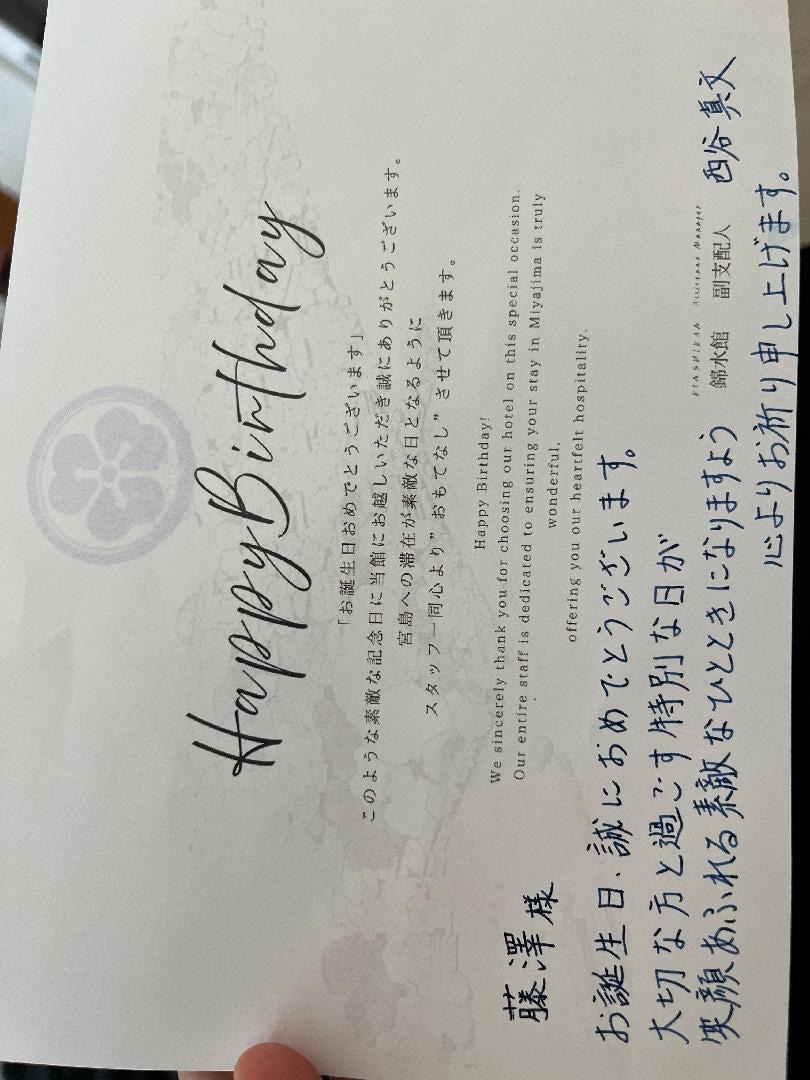 Happy Birthday
「お誕生日おめでとうございます」
このような素敵な記念日に当館にお越しいただき誠にありがとうございます。
宮島への滞在が素敵な日となるように
スタッフ一同心より”おもてなし”させて頂きます。
Happy Birthday!
We sincerely thank you for choosing our hotel on this special occasion.
Our entire staff is dedicated to ensuring your stay in Miyajima is truly
wonderful,
offering you our heartfelt hospitality.
藤澤様
お誕生日、誠におめでとうございます。
大切な方と過ごす特別な日が
笑顔あふれる素敵なひとときになりますよう
心よりお祈り申し上げます。
KINSUIKAN Assistant Manager
錦水館 副支配人 西谷真文